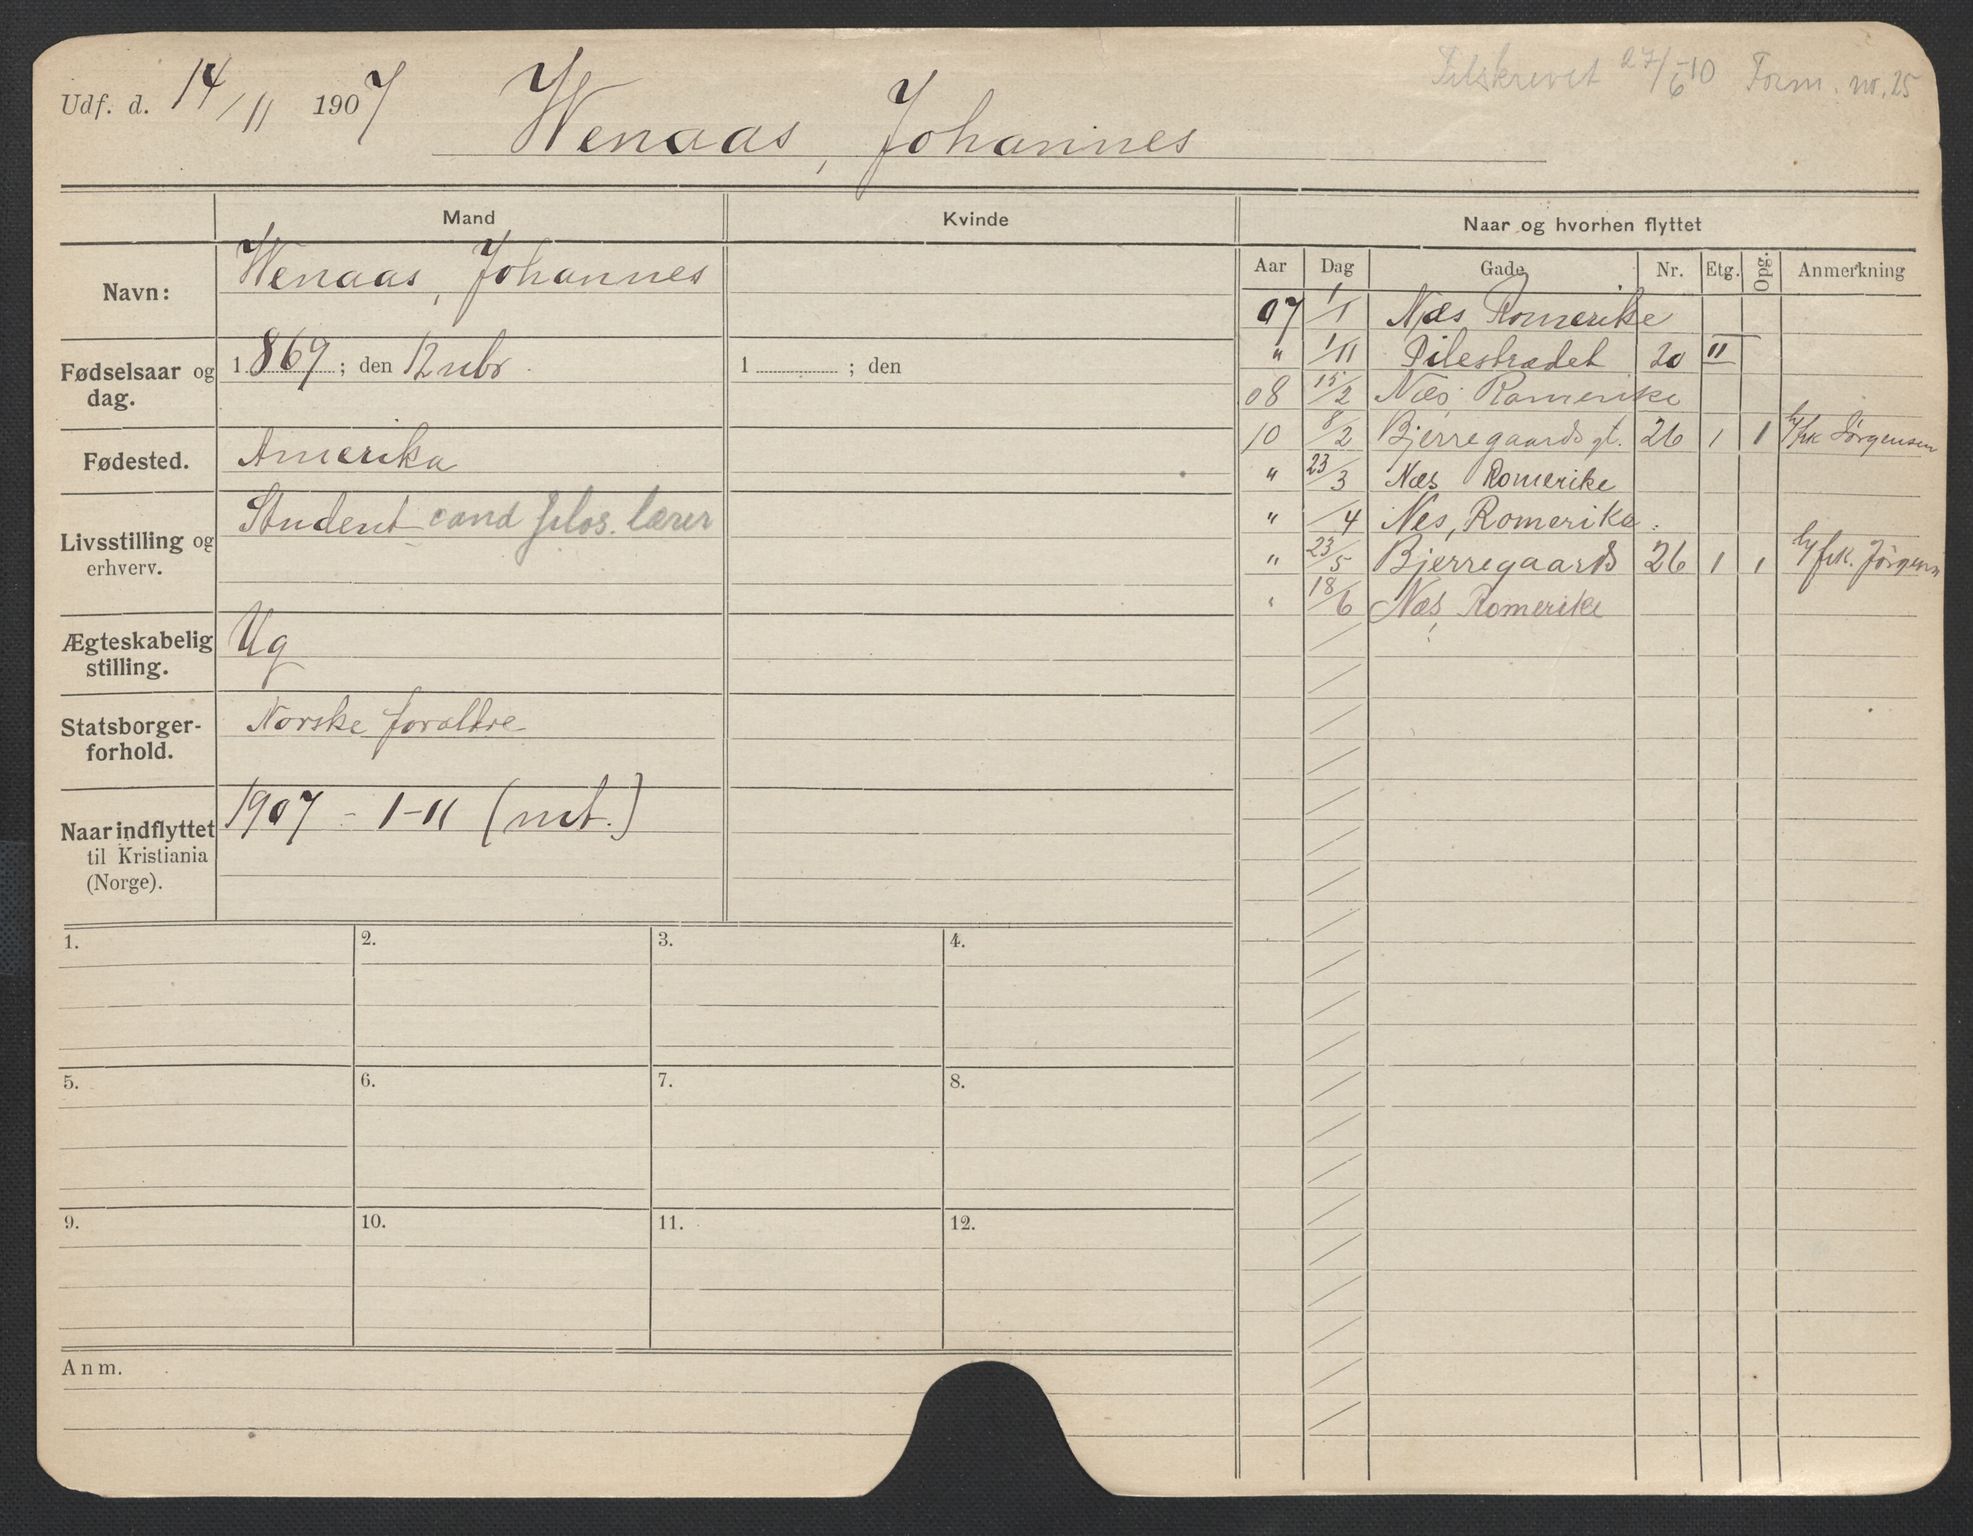 Udf. d. 14/11 1907 Wenaas, Johannes
Tilskrevet 27/6-10 Form. nr. 25
Mand Kvinde
Navn: Wenaas, Johannes
Fødselsaar og dag. 1869; den 12 nbr. 1 ; den
Fødested. Amerika
Livsstilling og erhverv. Student cand filos. lærer
Ægteskabelig stilling. Ug
Statsborgerforhold. Norske forældre
Naar indflyttet til Kristiania (Norge). 1907 - 1-11 (mt.)
1. 2. 3. 4.
5. 6. 7. 8.
9. 10. 11. 12.
Anm.
Naar og hvorhen flyttet
Aar Dag Gade Nr. Etg. Opg. Anmerkning
07 1/1 Næs Romerike
" 1/11 Pilestrædet 20 II
08 15/2 Næs Romerike
10 8/2 Bjerregaards gt. 26 1 1 h/frk Jørgensen
" 23/3 Næs Romerike
" /4 Nes, Romerike.
" 23/5 Bjerregaards 26 1 1 h/frk. Jørgensen
" 18/6 Næs, Romerike